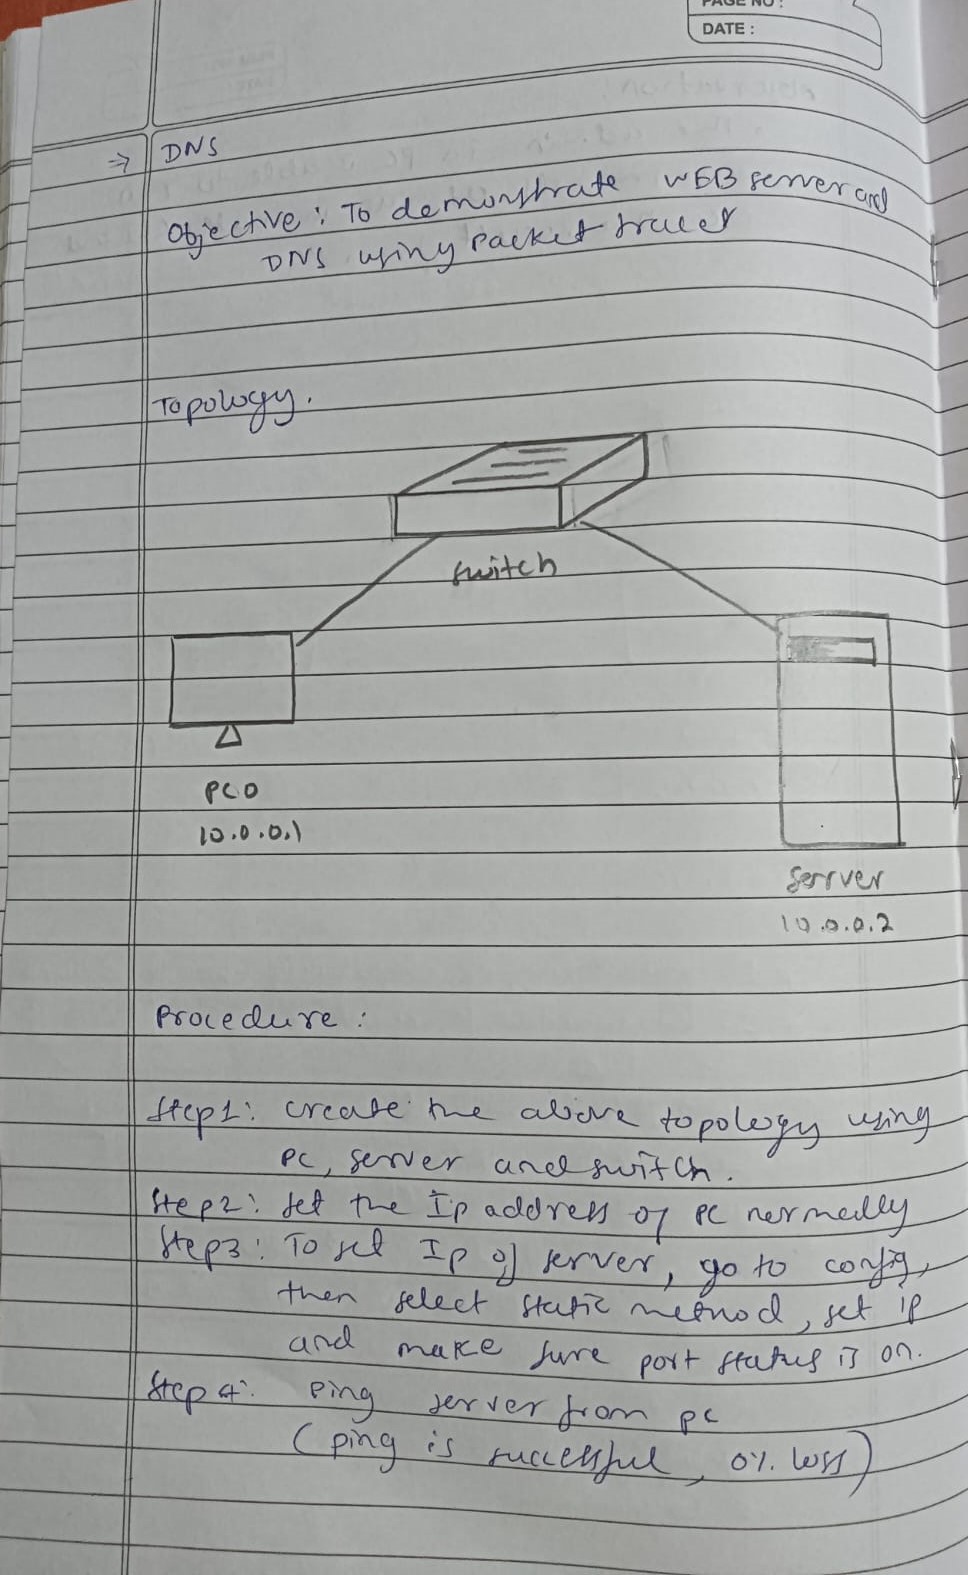 PAGE NO :
DATE :
⇒ DNS
Objective : To demonstrate WEB server and
DNS using Packet tracer
Topology.
switch
PC0
10.0.0.1
Serrver
10.0.0.2
Procedure :
Step1: create the above topology using
PC, server and switch.
Step2: set the Ip address of PC normally
Step3: To set Ip of server, go to config,
then select static method, set ip
and make sure port status is on.
Step 4: Ping server from pc
(ping is successful, 0% loss)